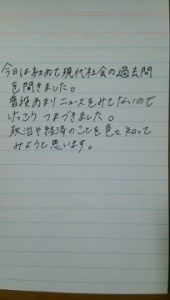 今日は初めて現代社会の過去問
を開きました。
普段あまりニュースをみてないので
けっこうつまづきました。
政治や経済のことを色々知って
みようと思います。